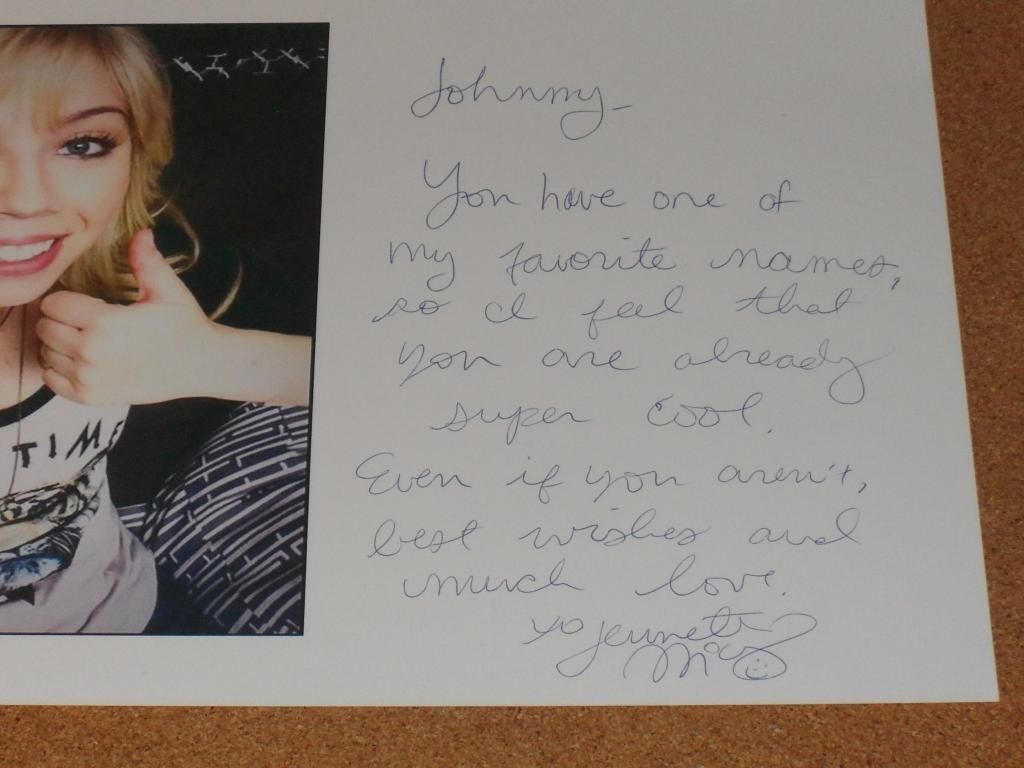 TIME
Johnny-
You have one of
my favorite names,
so I feel that
you are already
super cool.
Even if you aren't,
best wishes and
much love.
xo Jennette
Mc